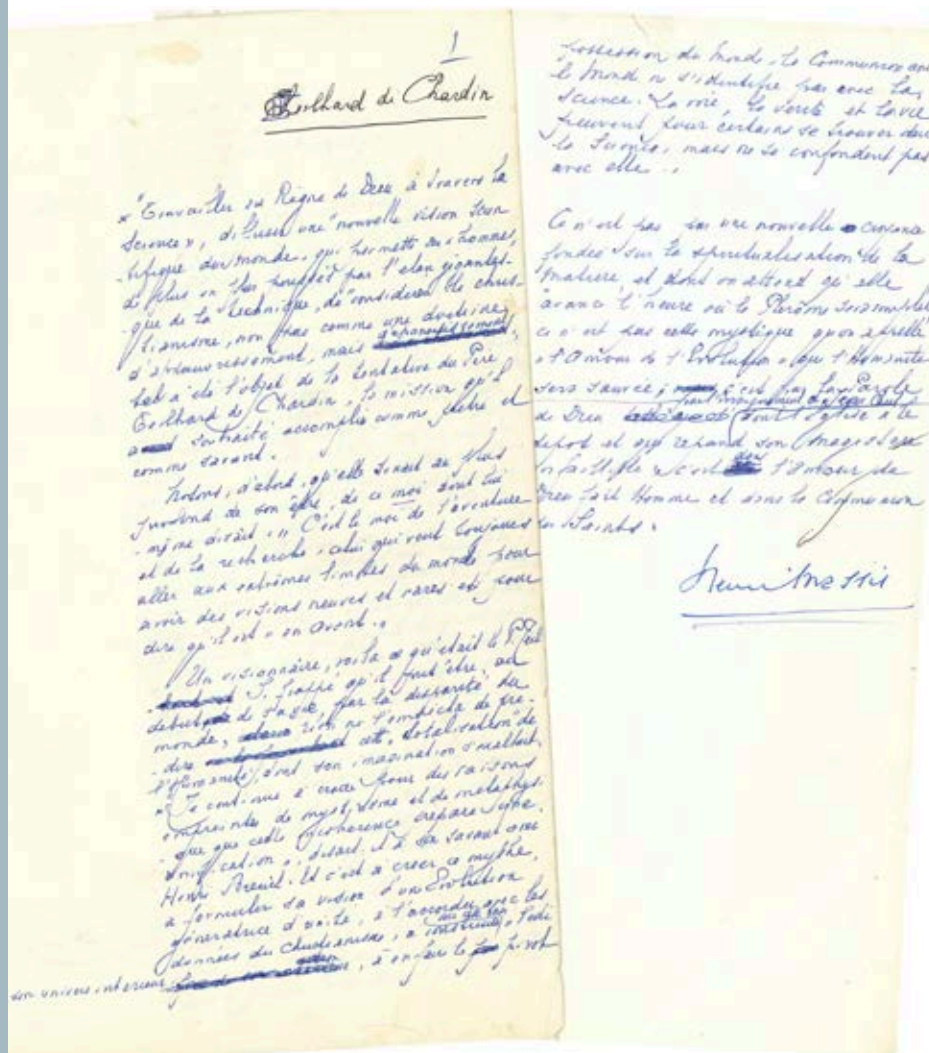 1
Teilhard de Chardin
« Travailler au Règne de Dieu à travers la
Science », diffuser une nouvelle vision scien
tifique du monde, qui permette aux hommes,
de plus en plus poussés par l'élan gigantes-
que de la technique, de considérer le chris-
tianisme, non pas comme une doctrine
d'amenuisement, mais d'épanouissement,
tel a été l'objet de la tentative du Père
Teilhard de Chardin, la mission qu'il
souhaité accomplir comme prêtre et
comme savant.
Notons, d'abord, qu'elle tenait au plus
profond de son être, de ce moi dont lui
-même disait : « C'est le moi de l'aventure
et de la recherche, celui qui veut toujours
aller aux extrêmes limites du monde pour
avoir des visions neuves et rares et pour
dire qu'il est « en avant ».
Un visionnaire, voilà ce qu'était le P. Teil
. Si frappé qu'il fut être, au
début de sa vie, par la disparité du
monde, rien ne l'empêcha de pré-
dire cette totalisation de
l'Humanité, dont son imagination s'exaltait
« Je continue à croire pour des raisons
empreintes de mysticisme et de métaphysi-
que que cette incohérence prépare une
unification », disait-il à son savant ami
Henri Breuil. Et c'est à créer ce mythe,
à formuler sa vision d'une Évolution
génératrice d'unité, à l'accorder avec les
données du Christianisme, à
son univers intérieur, à en faire le pivot
possession du monde. La Communion avec
le Monde ne s'identifie pas avec la
Science. La voie, la vérité et la vie
peuvent pour certains se trouver dans
la Science, mais ne se confondent pas
avec elle ».
Ce n'est pas par une nouvelle croyance
fondée « sur la spiritualisation de la
matière, et dont on attend qu'elle
avance l'heure où le Plérôme sera complet
ce n'est pas cette mystique qu'on appelle
« l'Amour de l'Évolution » que l'Humanité
sera sauvée ; c'est par la Parole
de Dieu dont l'Église a le
dépôt et qui répand son magistère
infaillible c'est l'amour de
Dieu fait Homme et dans la Communion
des Saints.
Henri Massis